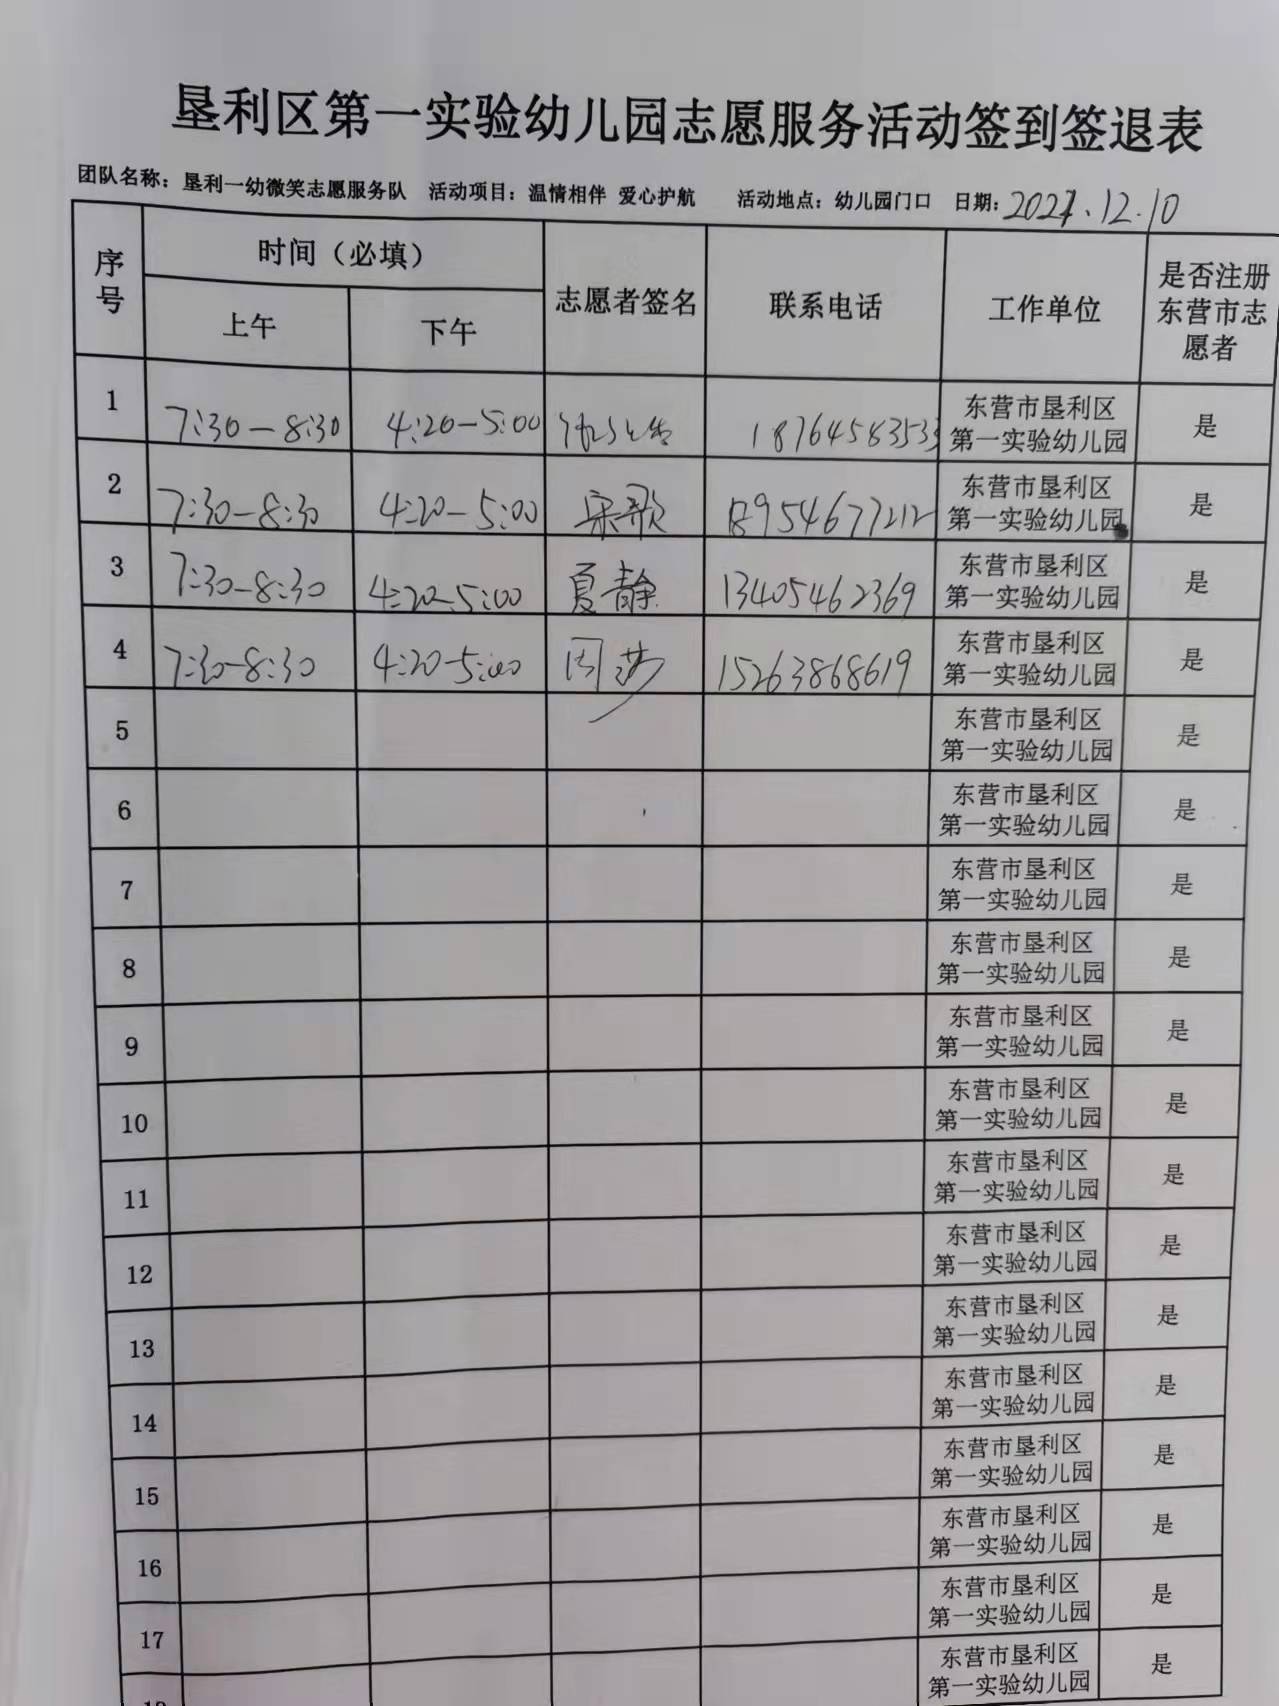 垦利区第一实验幼儿园志愿服务活动签到签退表
团队名称：垦利一幼微笑志愿服务队 活动项目：温情相伴 爱心护航 活动地点：幼儿园门口 日期：2021.12.10
序号 时间（必填） 志愿者签名 联系电话 工作单位 是否注册东营市志愿者
上午 下午
1 7:30-8:30 4:20-5:00 18764583533 东营市垦利区第一实验幼儿园 是
2 7:30-8:30 4:20-5:00 宋歌 18954677212 东营市垦利区第一实验幼儿园 是
3 7:30-8:30 4:20-5:00 夏静 13405462369 东营市垦利区第一实验幼儿园 是
4 7:30-8:30 4:20-5:00 周莎 15263868619 东营市垦利区第一实验幼儿园 是
5 东营市垦利区第一实验幼儿园 是
6 东营市垦利区第一实验幼儿园 是
7 东营市垦利区第一实验幼儿园 是
8 东营市垦利区第一实验幼儿园 是
9 东营市垦利区第一实验幼儿园 是
10 东营市垦利区第一实验幼儿园 是
11 东营市垦利区第一实验幼儿园 是
12 东营市垦利区第一实验幼儿园 是
13 东营市垦利区第一实验幼儿园 是
14 东营市垦利区第一实验幼儿园 是
15 东营市垦利区第一实验幼儿园 是
16 东营市垦利区第一实验幼儿园 是
17 东营市垦利区第一实验幼儿园 是
东营市垦利区第一实验幼儿园 是